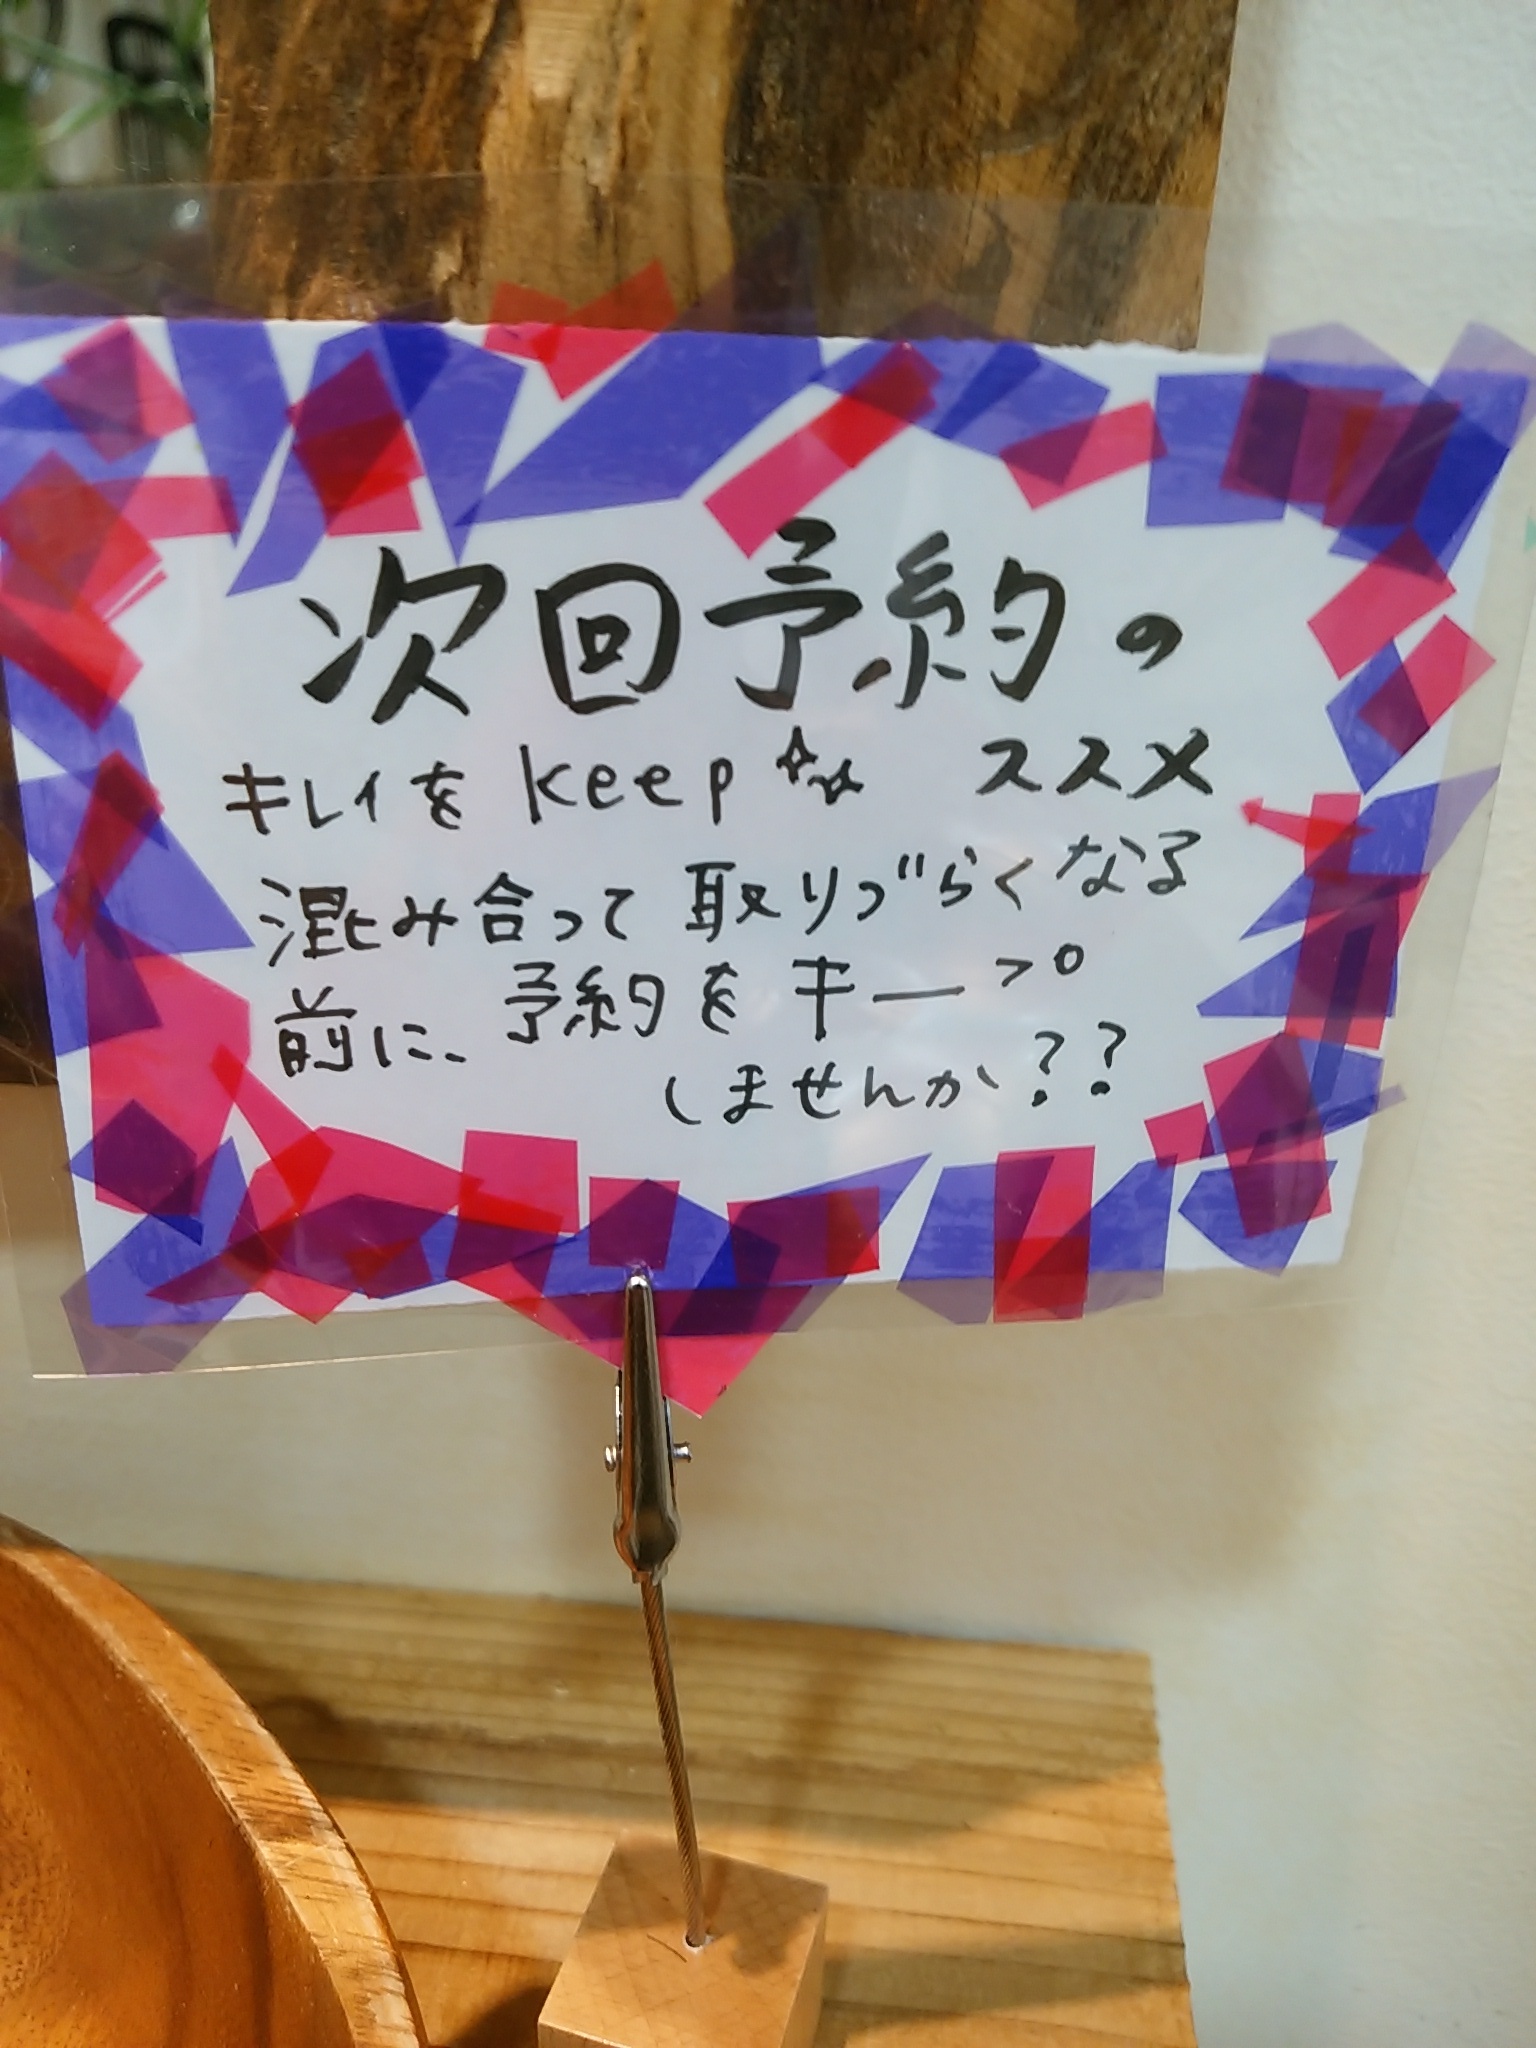 次回予約の
ススメ
キレイをkeep☆☆
混み合って取りづらくなる
前に、予約をキープ
しませんか??